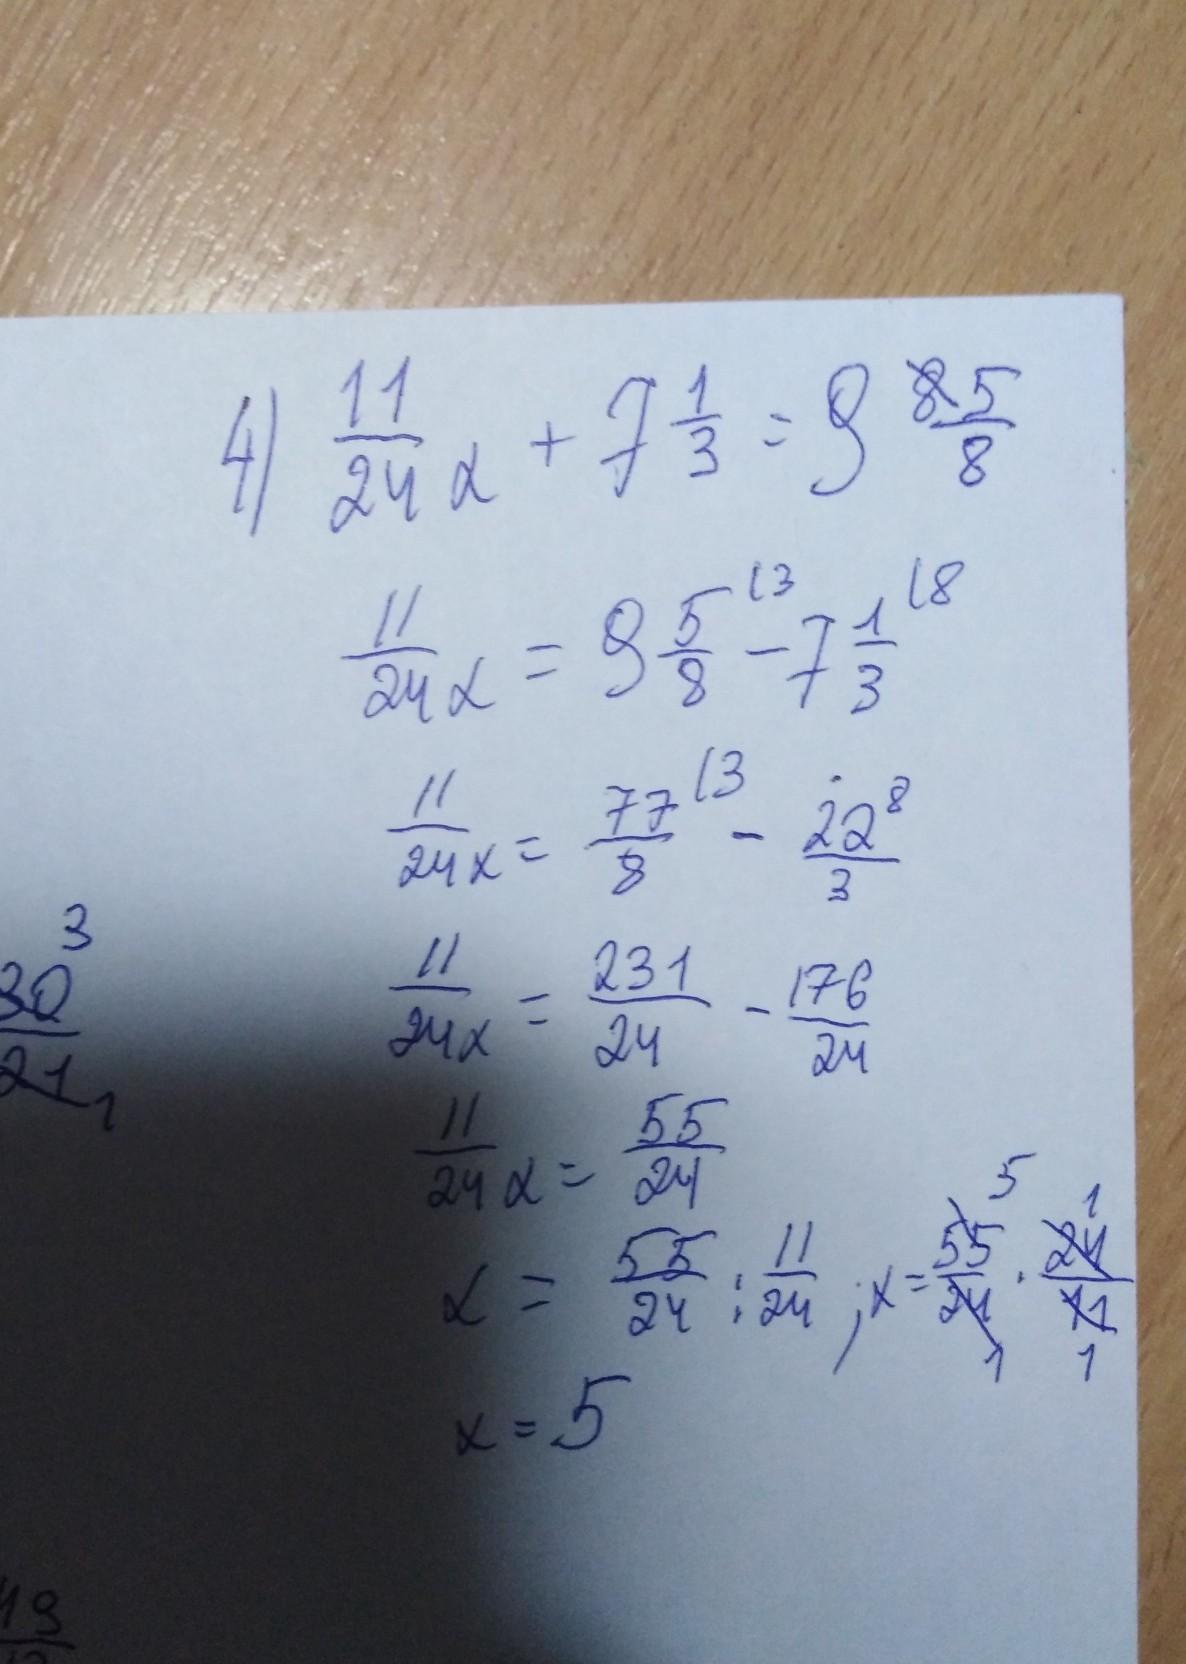 4) 11/24 x + 7 1/3 = 9 5/8
11/24 x = 9 5/8 (3 - 7 1/3 (8
11/24 x = 77/8 (3 - 22/3 8
11/24 x = 231/24 - 176/24
11/24 x = 55/24
x = 55/24 : 11/24 ; x = 55/24 · 24/11 5 1 1 1
x = 5
30/21 3 1